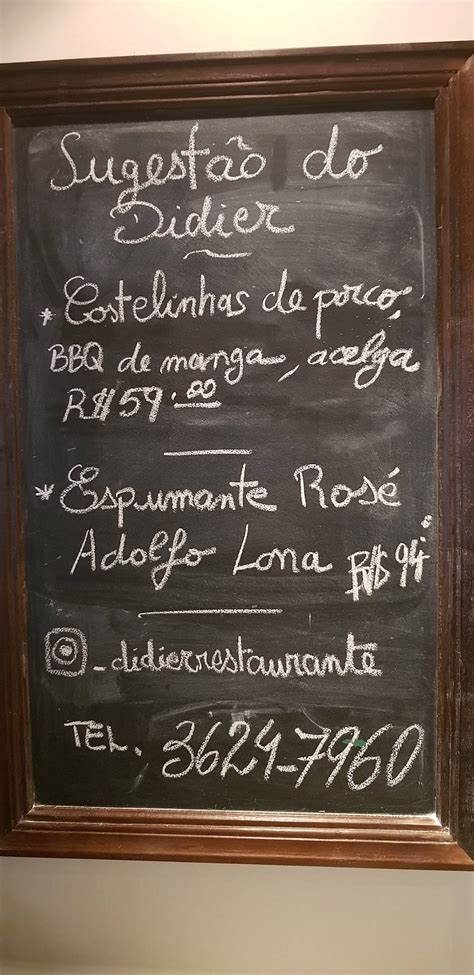 Sugestão do
Didier
* Costelinhas de porco,
BBQ de manga, acelga
R$ 59.00
* Espumante Rosé
Adolfo Lona R$ 94
_didierrestaurante
TEL. 3624-7960